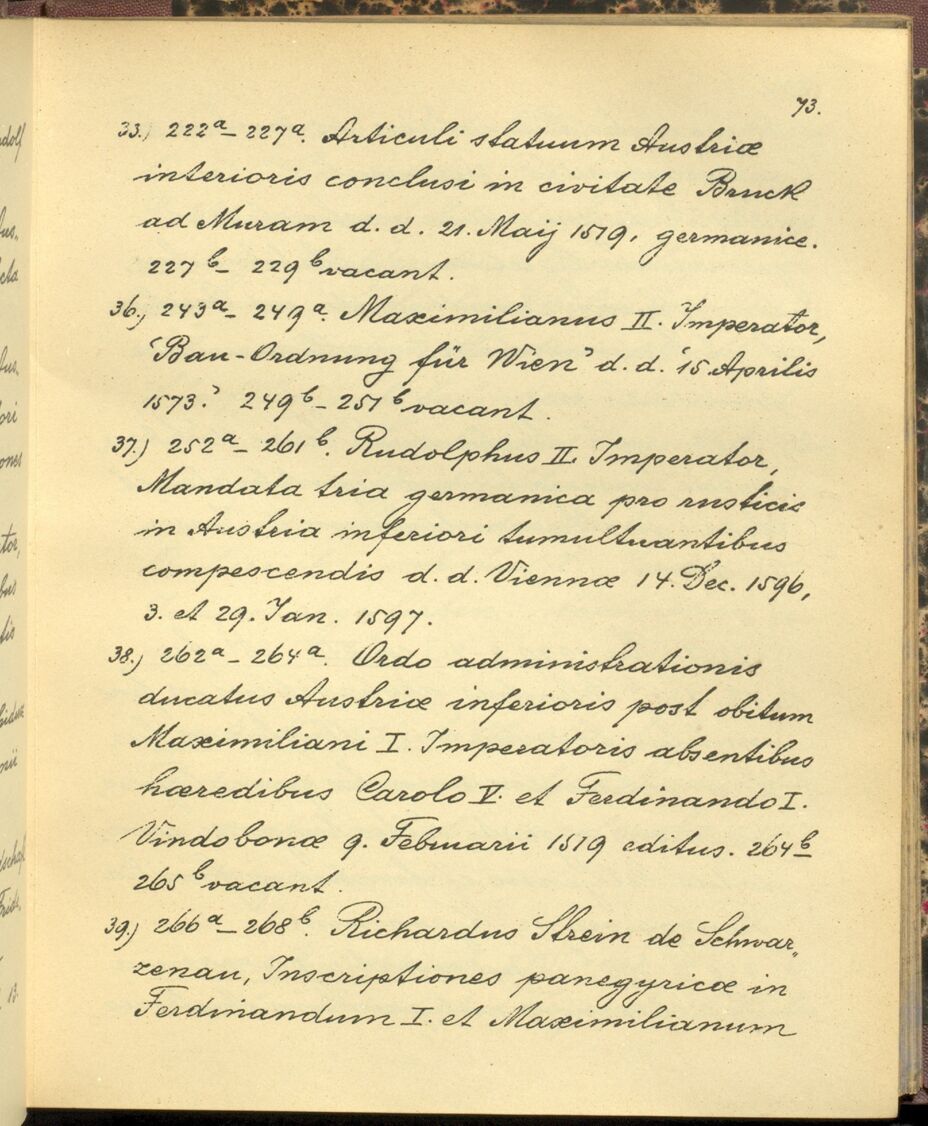 73.
33.) 222ª– 227ª. Articuli statuum Austriæ
interioris conclusi in civitate Bruck
ad Muram d. d. 21. Maij 1519, germanice.
227 ᵇ– 229 ᵇ vacant.
36.) 243ª– 249ª. Maximilianus II. Imperator,
‘Bau-Ordnung für Wien’ d. d. ‘15 Aprilis
1573.’ 249 ᵇ– 251 ᵇ vacant.
37.) 252ª– 261 ᵇ. Rudolphus II. Imperator,
Mandata tria germanica pro rusticis
in Austria inferiori tumultuantibus
compescendis d. d. Viennæ 14. Dec. 1596,
3. et 29. Jan. 1597.
38.) 262ª– 264ª. Ordo administrationis
ducatus Austriæ inferioris post obitum
Maximiliani I. Imperatoris absentibus
hæredibus Carolo V. et Ferdinando I.
Vindobonæ 9. Februarii 1519 editus. 264 ᵇ–
265 ᵇ vacant.
39.) 266ª– 268 ᵇ. Richardus Strein de Schwar„
zenau, Inscriptiones panegyricæ in
Ferdinandum I. et Maximilianum